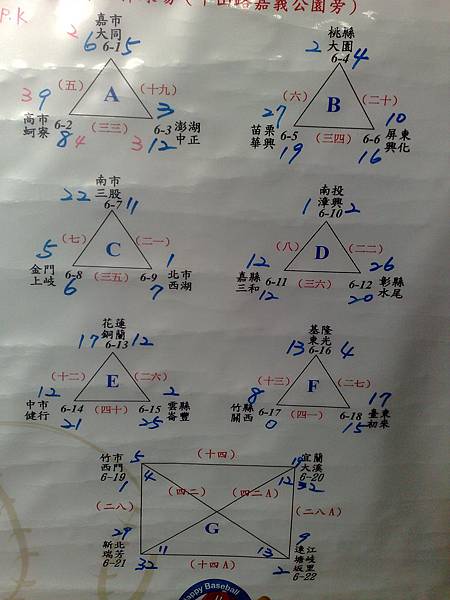 P.K
(中山路嘉義公園旁)
嘉市
大同
2 6 6-1 5
桃縣
大園
2 6-4 4
(五) A (十九)
(六) B (二十)
3 9 6-2
高市
蚵寮
8 4
(三三)
3
6-3 澎湖
中正
3 12
27
苗栗 6-5
華興
19
(三四)
10
6-6 屏東
興化
16
南市
三股
22 6-7 11
南投
漳興
1 6-10 2
(七) C (二一)
(八) D (二二)
5
金門 6-8
上岐 6
(三五)
1
6-9 北市
西湖
7
12
嘉縣 6-11
三和
12
(三六)
26
6-12 彰縣
水尾
20
花蓮
銅蘭
17 6-13 12
基隆
東光
13 6-16 4
(十二) E (二六)
(十三) F (二七)
12
中市 6-14
健行
21
(四十)
2
6-15 雲縣
崙豐
25
8
竹縣 6-17
關西
0
(四一)
17
6-18 臺東
初來
15
竹市 5
西門 4
6-19
1
(十四)
宜蘭
大溪
6-20
12 32
(四二) (四二A)
(二八) G (二八A)
29
新北
瑞芳
6-21
11
32
(十四A)
9
13 連江
塘岐
坂里
2 6-22
Happy Baseball